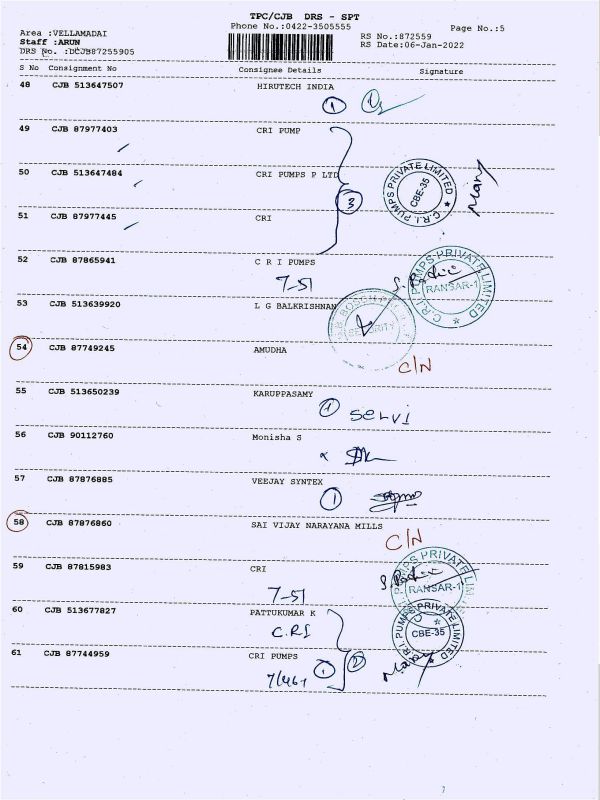 TPC/CJB DRS - SPT
Phone No.:0422-3505555
Page No.:5
Area :VELLAMADAI
RS No.:872559
Staff :ARUN
RS Date:06-Jan-2022
DRS No. :DCJB87255905
S No Consignment No Consignee Details Signature
48 CJB 513647507 HIRUTECH INDIA
1
49 CJB 87977403 CRI PUMP
50 CJB 513647484 CRI PUMPS P LTD
3
C.R.I. PUMPS PRIVATE LIMITED
CBE-35
Mary
51 CJB 87977445 CRI
52 CJB 87865941 C R I PUMPS
7-51
C.R.I. PUMPS PRIVATE LIMITED
RANSAR-1
53 CJB 513639920 L G BALKRISHNAN
SECURITY
54 CJB 87749245 AMUDHA
C/N
55 CJB 513650239 KARUPPASAMY
1 selvi
56 CJB 90112760 Monisha S
57 CJB 87876885 VEEJAY SYNTEX
1
58 CJB 87876860 SAI VIJAY NARAYANA MILLS
C/N
59 CJB 87815983 CRI
7-51
PUMPS PRIVATE LIMITED
RANSAR-1
60 CJB 513677827 PATTUKUMAR K
C.R.I
C.R.I. PUMPS PRIVATE LIMITED
CBE-35
61 CJB 87744959 CRI PUMPS
1 2
Mary